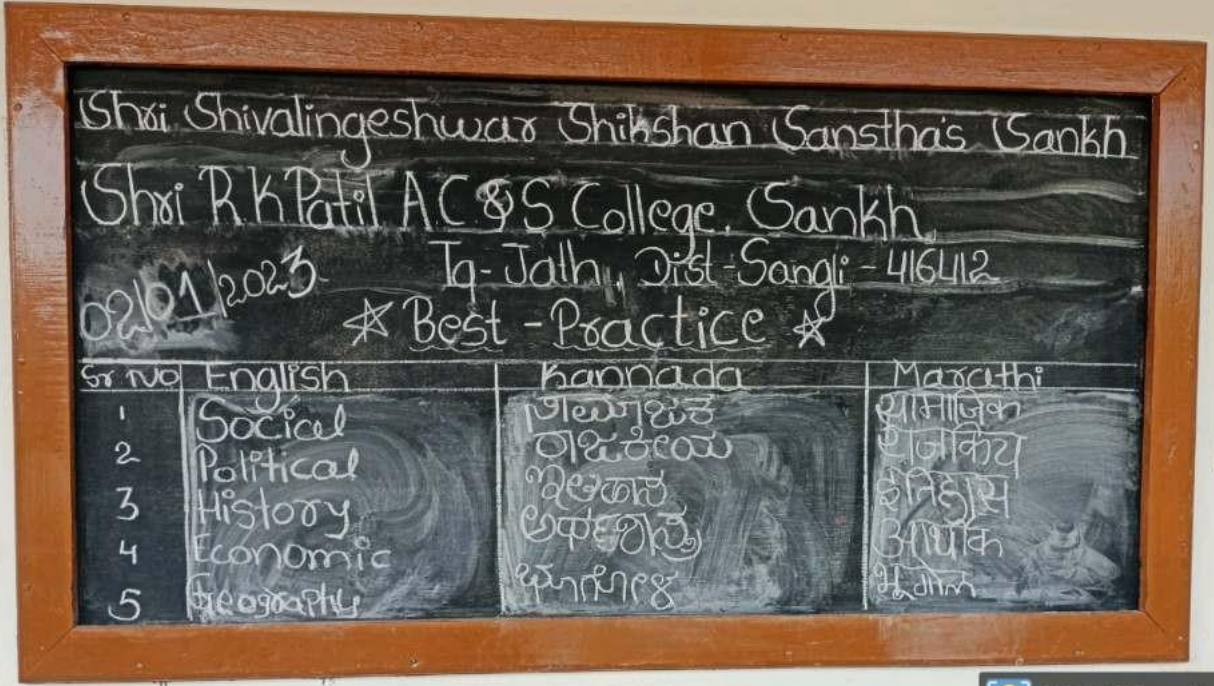 Shri Shivalingeshwar Shikshan Sanstha's Sankh
Shri R.K Patil A.C.&S College, Sankh,
Tq-Jath, Dist-Sangli-416412
02/01/2023
☆ Best-Practice ☆
Sr No English Kannada Marathi
1 Social सामाजिक
2 Political ರಾಜಕೀಯ राजकिय
3 History ಇತಿಹಾಸ इतिहास
4 Economic ಅರ್ಥಶಾಸ್ತ್ರ आर्थीक
5 Geography ಭೂಗೋಳ भूगोल